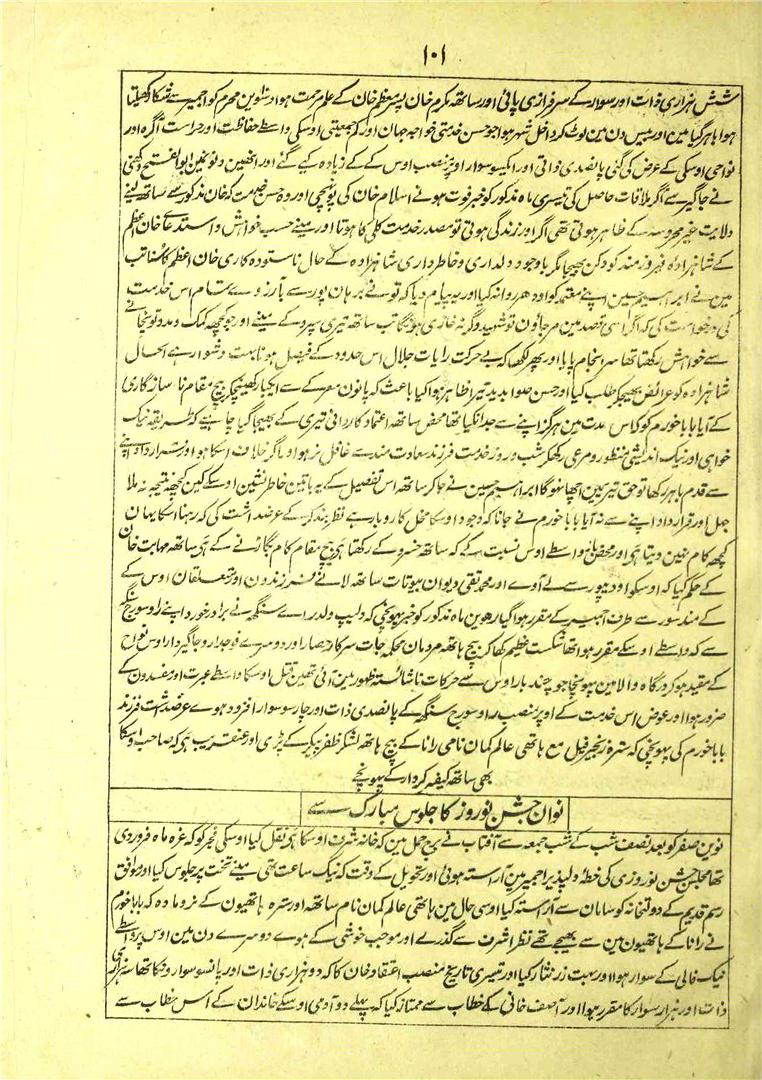 ۱۰۱
شش ہزاری ذات اور سوار کے سرفرازی پائی اور ساتھ مکرم خان پسر معظم خان کے علم مرحمت ہوا دسوین محرم کو اجمیر سے شکار کھیلتا
ہوا باہر گیا مین اور بیس دن مین لوٹ کر داخل شہر ہوا جو حسن خدمتی خواجہ جہان اور کم جمعیتی اوسکی واسطے حفاظت اور حراست آگرہ اور
نواحی اوسکی کے عرض کی گئی پانصدی ذاتی اور ایکسو سوار اوپر منصب اوس کے کے زیادہ کیے گئے اور انھین دنون مین ابوالفتح دکھنی
نے جاگیر سے آکر ملاقات حاصل کی تیسری ماہ مذکور کو خبر فوت ہونے اسلام خان کی پہونچی اور وہ حسن خدمت کہ خان مذکور سے ساتھ لینے
ولایت غیر محروسہ کے ظاہر ہوتی تھی اگر اور زندگی ہوتی تو مصدر خدمت کلی کا ہوتا اور مینے حسب خواہش و استدعای خان اعظم
کے شاہزادہ فیروزمند کو دکن بھیجا مگر باوجود دلداری و خاطرداری شاہزادہ کے حال ناستودہ کاری خان اعظم کا سُنا تب
مین نے ابراہیم حسین اپنے معتمد کو اودھر روانہ کیا اور یہ پیام دیا کہ تو نے برہان پور سے بآرزوے تمام اس خدمت
کی درخواست کی کہ اگر اسی قصد مین مر جاؤن تو شہید وگرنہ غازی ہونگا تب ساتھ تیری سپرد کے مینے اور جو کچھ کمک و مدد توپخانے
سے خواہش رکھتا تھا سرانجام پایا اور پھر لکھا کہ بے حرکت رایات جلال اس حدود کے فیصل ہونا بہت دشوار ہے الحال
شاہزادہ کو عرائض بھیجکر طلب کیا اور حسن صوابدید تیرا ظاہر ہوا کیا باعث کہ پانون معرکے سے ایکبار کھینچکر بیچ مقام ناسازگاری
کے آیا بابا خورم کو کہ اس مدت مین ہرگز اپنے سے جدا نکیا تھا محض ساتھ اعتماد کاردانی تیری کے بھیجا گیا چاہیے کہ طریقہ نیک
خواہی اور نیک اندیشی منظور و مرعی رکھکر شب و روز خدمت فرزند سعادت مند سے غافل نہو اور اگر خلاف اسکا ہو اور قرارداد اپنے
سے قدم باہر رکھا تو حق تیرے مین اچھا نہوگا ابراہیم حسین نے جا کر ساتھ اس تفصیل کے یہ باتین خاطر نشین اوسکے کین کچھ نتیجہ نہ ملا
جہل اور قرارداد اپنے سے نہ آیا بابا خورم نے جانا کہ وجود اوسکا مخل کاروبار ہے نظربند کر کے عرضداشت کی کہ رہنا اسکا یہان
کچھ کام نہین دیتا ہی اور محض واسطے اوس نسبت کے کہ ساتھ خسرو کے رکھتا ہی بیچ مقام کام بگاڑنے کے ہی ساتھ مہابت خان
کے حکم کیا کہ اوسکو اودیپور سے لے آوے اور محمد تقی دیوان بیوتات ساتھ لانے فرزندون اور متعلقان اوس کے
کے مندسور سے طرف اجمیر کے مقرر ہوا گیارھوین ماہ مذکور کو خبر پہونچی کہ دلیپ ولد راے سنگھ نے برادر خورد اپنے راو سورج سنگھ
سے کہ واسطے اوسکے مقرر ہوا تھا شکست عظیم کھا کر بیچ ہاتھ مردمان محکمہ جات سرکار حصار اور دوسرے فوجدار و جاگیردار اوس نواح
کے مقید ہوکر درگاہ والا مین پہونچا جو چند بار اوس سے حرکات ناشائستہ ظہور مین آئی تھین قتل اوسکا واسطے عبرت اور مفسدون کے
ضرور ہوا اور عوض اس خدمت کے اوپر منصب راو سورج سنگھ کے پانصدی ذات اور چار سو سوار افزود ہوے عرضداشت فرزند
بابا خورم کی پہونچی کہ سترہ زنجیر فیل مع ہاتھی عالم کمان نامی رانا کے بیچ ہاتھ لشکر ظفر پیکر کے پڑی اور عنقریب ہی کہ صاحب اوسکا
بھی ساتھ کیفر کردار کے پہونچے
نوان جشن نوروز کا جلوس مبارک سے
نوین صفر کو بعد نصف شب کے شب جمعہ سے آفتاب نے برج حمل مین کہ خانہ شرف اوسکا ہی نقل کیا اوسکی فجر کو کہ غرہ ماہ فروردی
تھا مجلس جشن نوروزی کی خطہ دلپذیر اجمیر مین آراستہ ہوئی اور تحویل کے وقت کہ نیک ساعت تھی مینے تخت پر جلوس کیا اور موافق
رسم قدیم کے دولتخانہ کو سامان سے آراستہ کیا اوسی حال مین ہاتھی عالم کمان نام ساتھ اور سترہ ہاتھیون کے نر و مادہ کہ بابا خورم
نے رانا کے ہاتھیون مین سے بھیجے تھے نظر اشرف سے گذرے اور موجب خوشی کے ہوے دوسرے دن مین اوس پر واسطے
نیک فالی کے سوار ہوا اور بہت زر نثار کیا اور تیسری تاریخ منصب اعتقاد خان کا کہ دو ہزاری ذات اور پانسو سوار ونکا تھا سہ ہزاری
ذات اور ہزار سوار کا مقرر ہوا اور آصف خانی کے خطاب سے ممتاز کیا کہ پہلے دو آدمی اوسکے خاندان کے اس خطاب سے